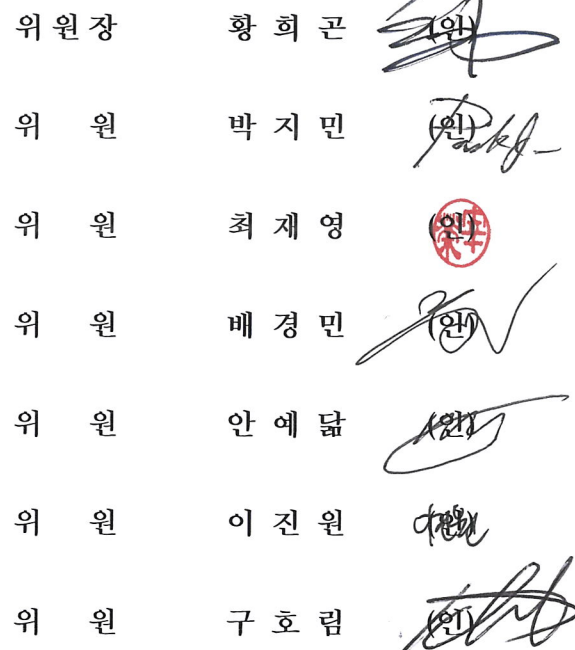 위 원 장 황 희 곤 (인)
위 원 박 지 민 (인)
위 원 최 재 영 (인)
위 원 배 경 민 (인)
위 원 안 예 닮 (인)
위 원 이 진 원 (인)
위 원 구 호 림 (인)